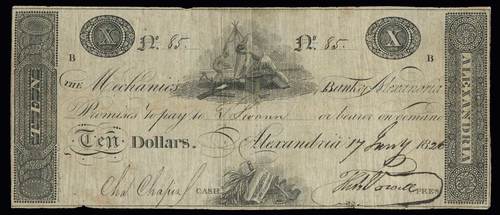 X No. 85. No. 85. X
B B
THE Mechanics Bank of Alexandria
Promises to pay to or bearer on demand
Ten Dollars. Alexandria 17 Jany
Chas Chapin CASH. PRES.
TEN
ALEXANDRIA